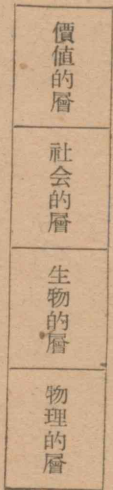 價値的層
社会的層
生物的層
物理的層